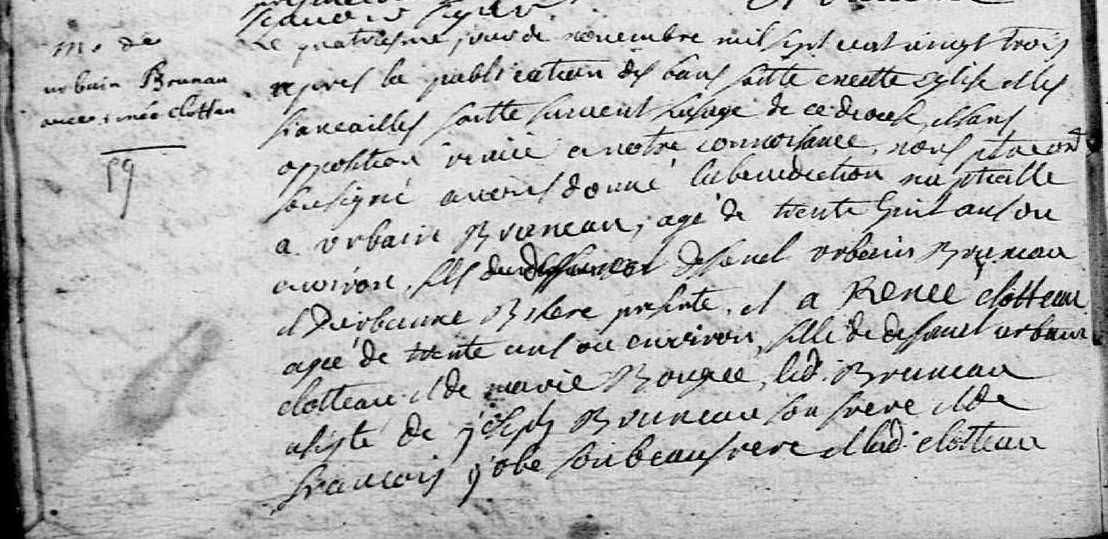 francois
M. de
urbain Brunau
avec renée Clottau
59
Le quatriesme jour de novembre mil sept cent vingt trois
apres la publication des bans faitte en cette eglise et les
fiancailles faitte suivent lusage de ce diocese, et sans
opposition venue a notre connoissance, nous
soussigné avons donné la benediction nuptialle
a urbain Bruneau, agé de trente huit ans ou
environ, fils de deffunct urbain Bruneau
et durbanne presente, et a Renee Clotteau
agée de trente ans ou environ, fille de deffunct urbain
Clotteau et de marie Bougee, led. Bruneau
asisté de joseph Bruneau son frere et de
francois jobe son beaufrere et lad. Clotteau